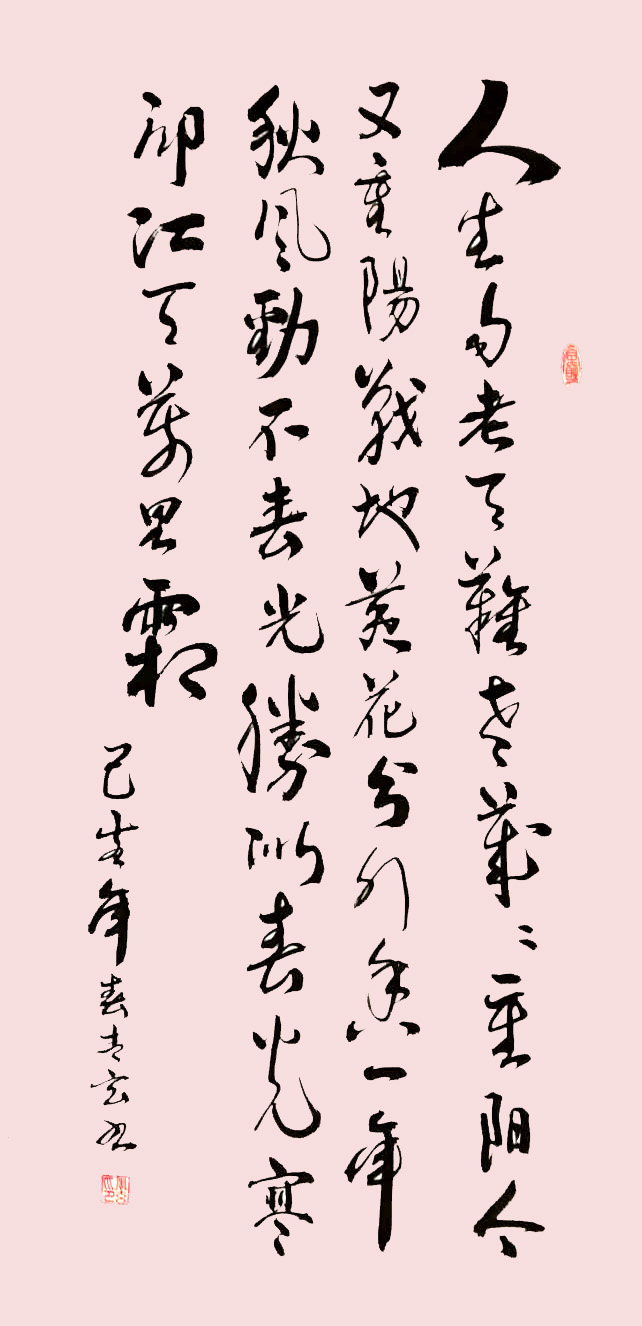 人生易老天難老歲々重陽今
又重陽戰地黃花分外香一年
秋風勁不春光勝似春光寥
廓江天萬里霜
己亥年春 书